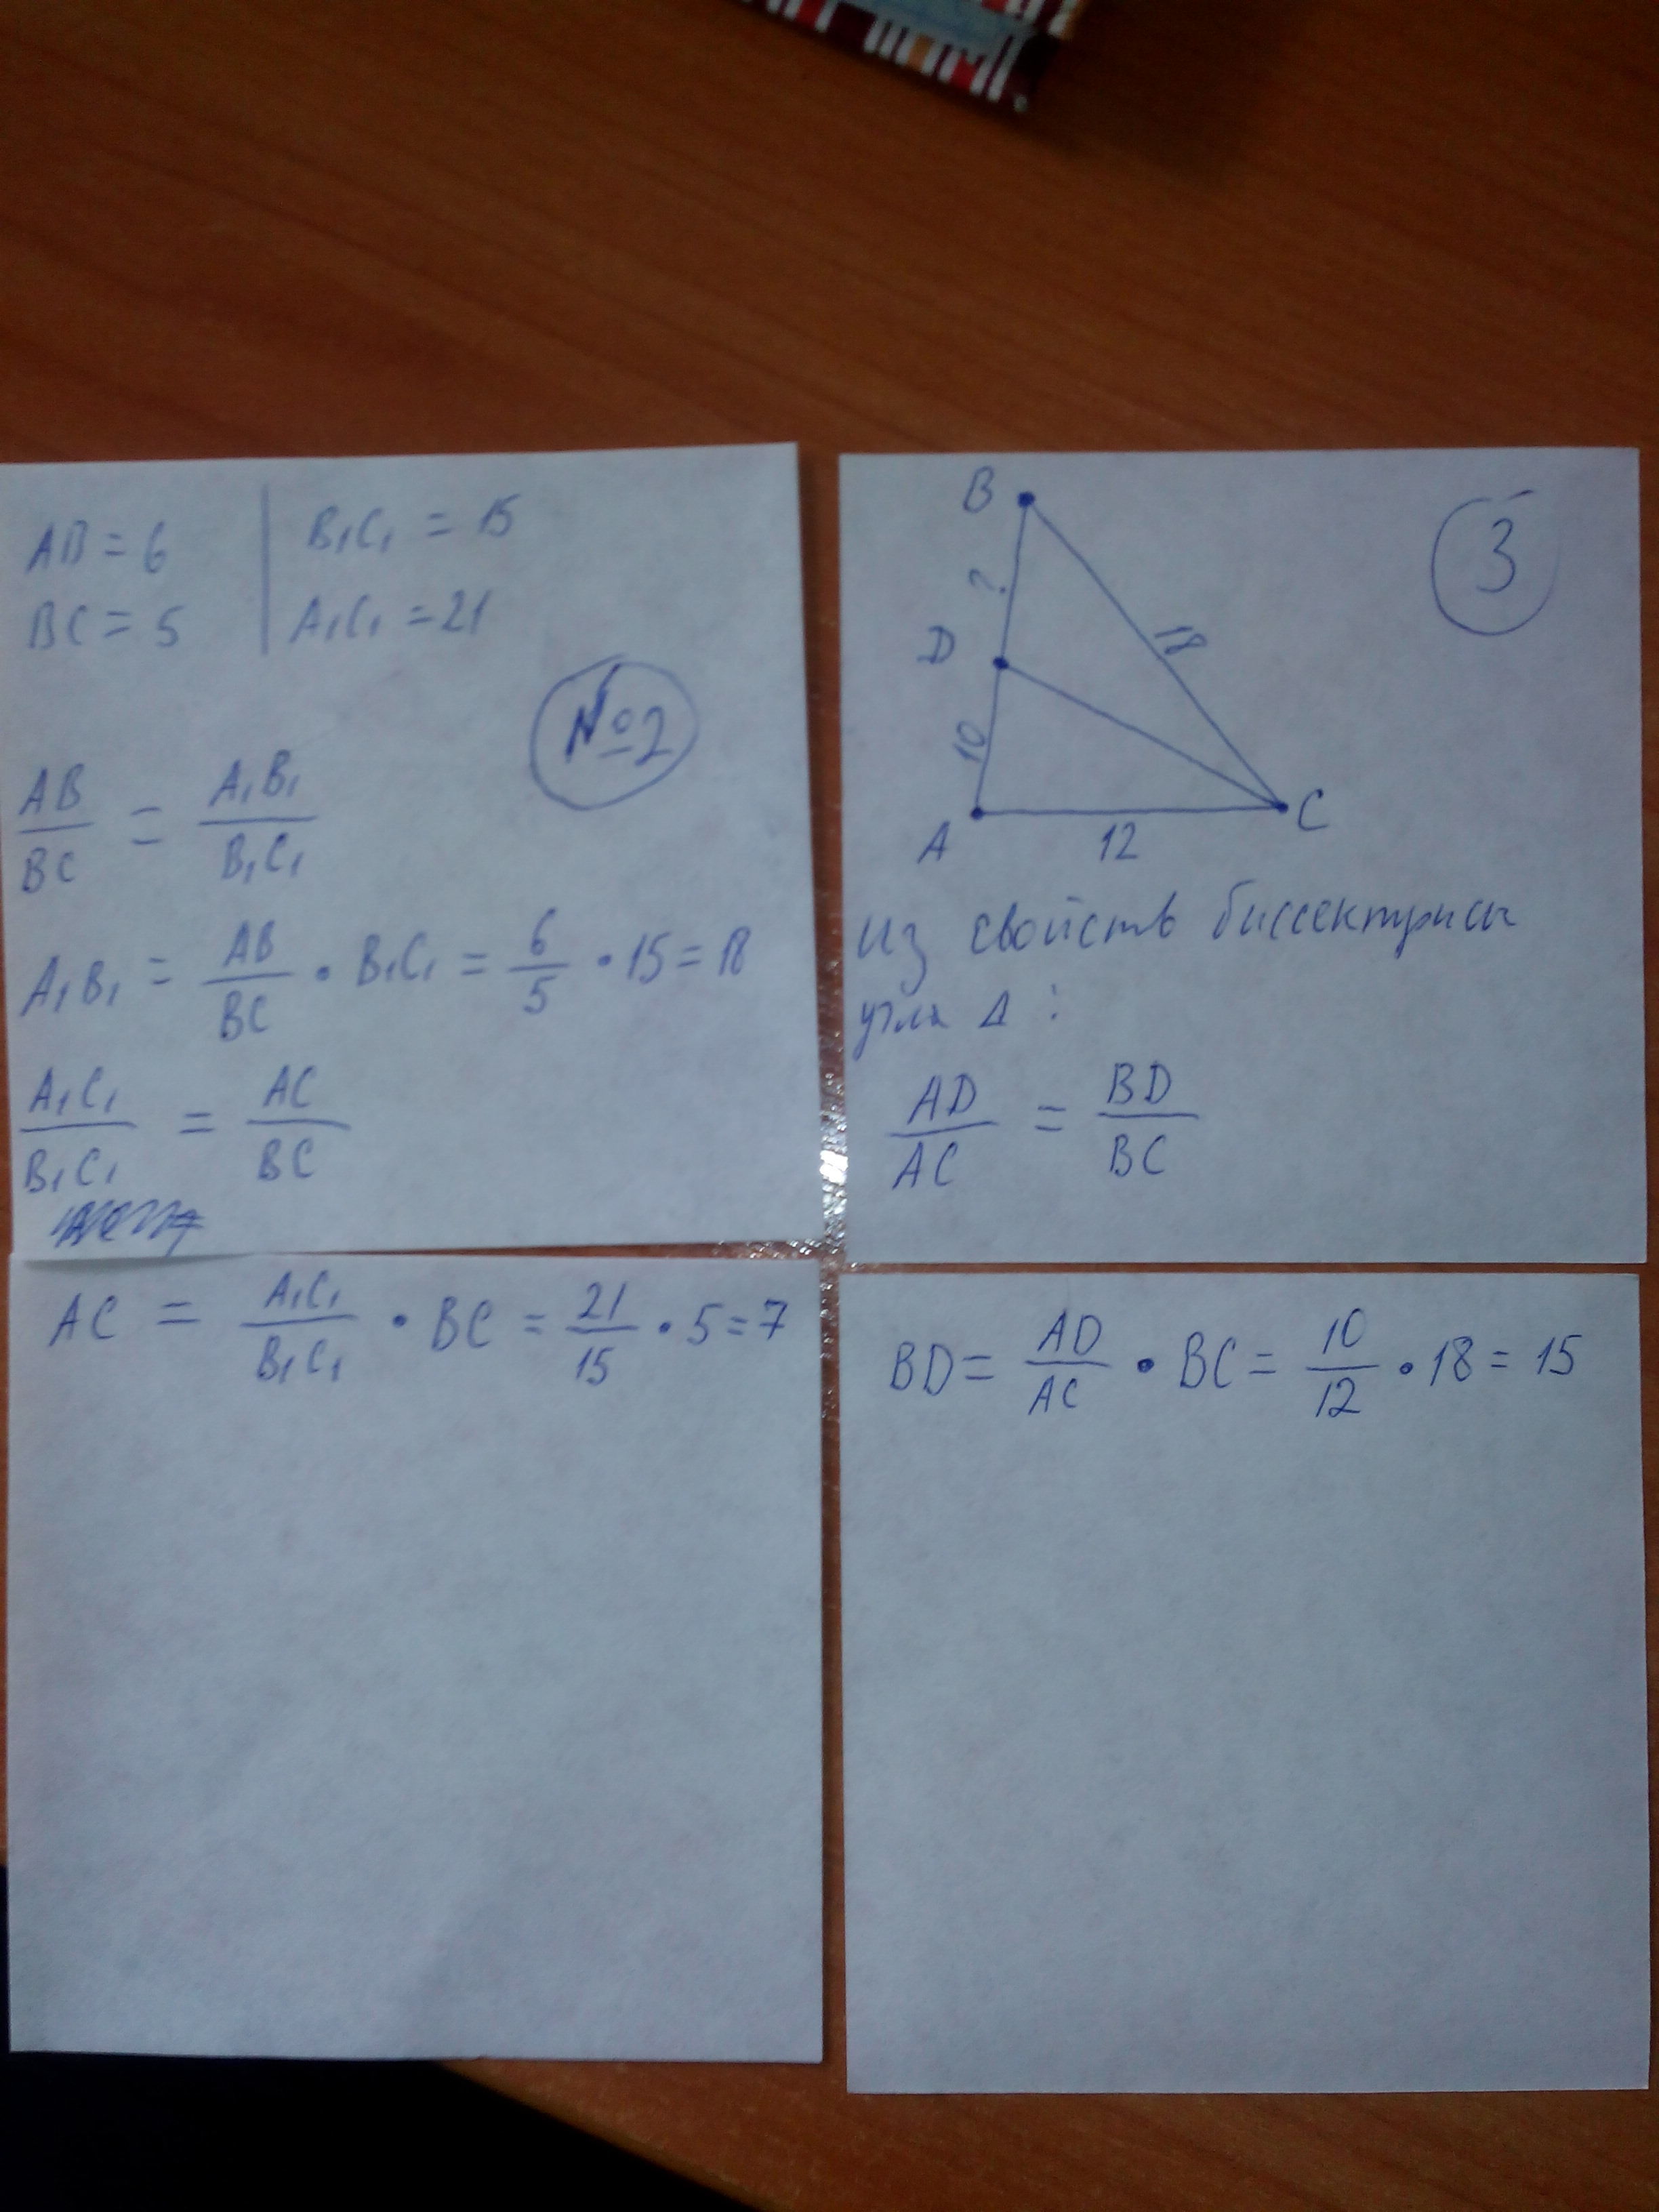 AB = 6 | B₁C₁ = 15
BC = 5 | A₁C₁ = 21
№2
AB/BC = A₁B₁/B₁C₁
A₁B₁ = AB/BC • B₁C₁ = 6/5 • 15 = 18
A₁C₁/B₁C₁ = AC/BC
AC = A₁C₁/B₁C₁ • BC = 21/15 • 5 = 7
3
B
?
18
D
10
A
12
C
из свойств биссектрисы
угла Δ :
AD/AC = BD/BC
BD = AD/AC • BC = 10/12 • 18 = 15